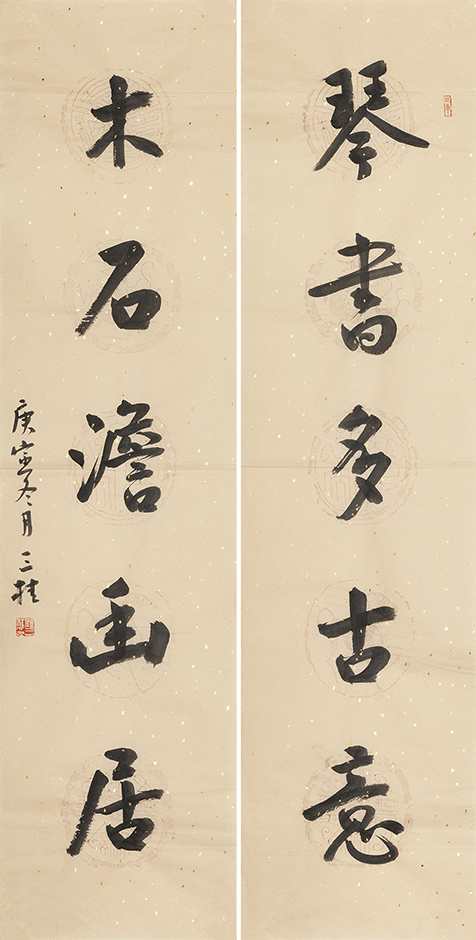 琴書多古意
木石澹幽居
庚寅冬月 三桂